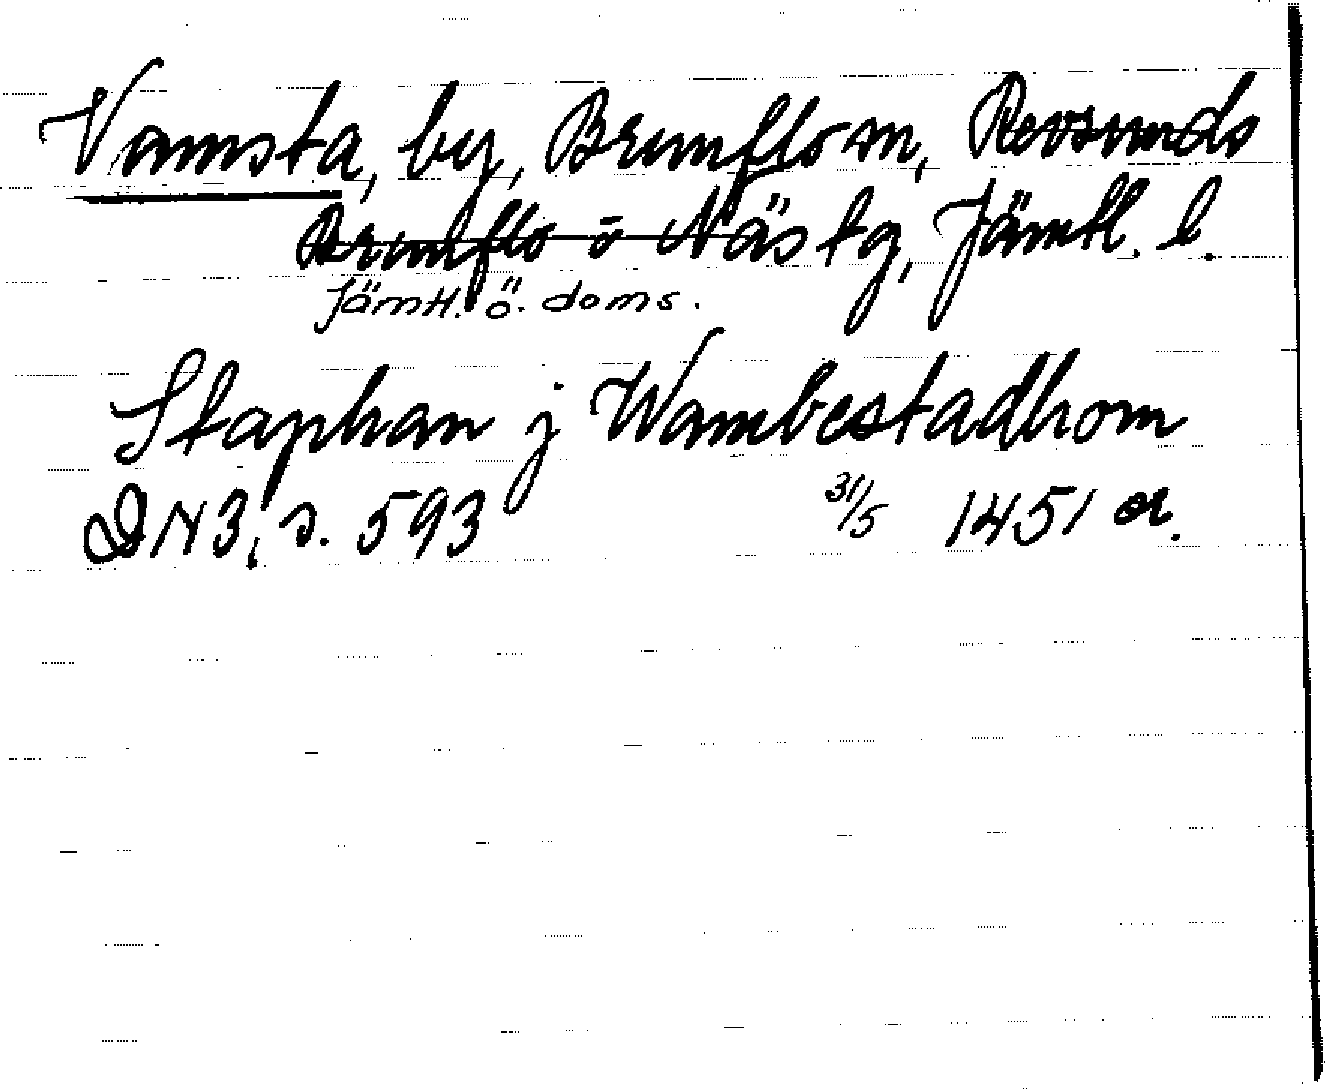 Vamsta, by, Brunflo sn, Revsunds
Brunflo o Näs tg, Jämtl. l.
Jämtl. ö. doms.
Staphan j Wambestadhom
DN 3, s. 593 31/5 1451 or.